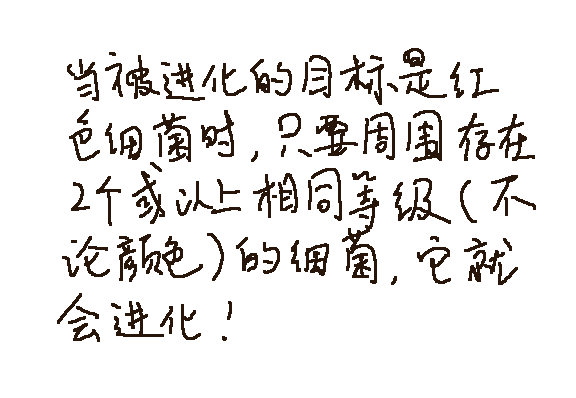 当被进化的目标是红
色细菌时，只要周围存在
2个或以上相同等级（不
论颜色）的细菌，它就
会进化！